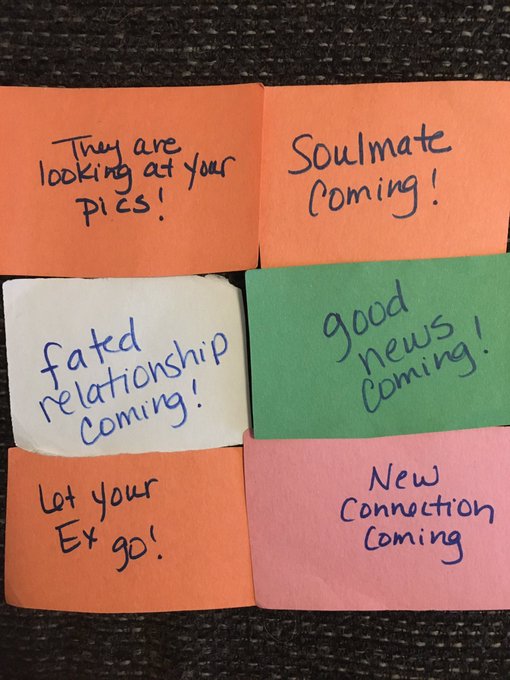 They are
looking at your
pics!
Soulmate
Coming!
fated
relationship
coming!
good
news
coming!
Let your
Ex
go!
New
Connection
Coming